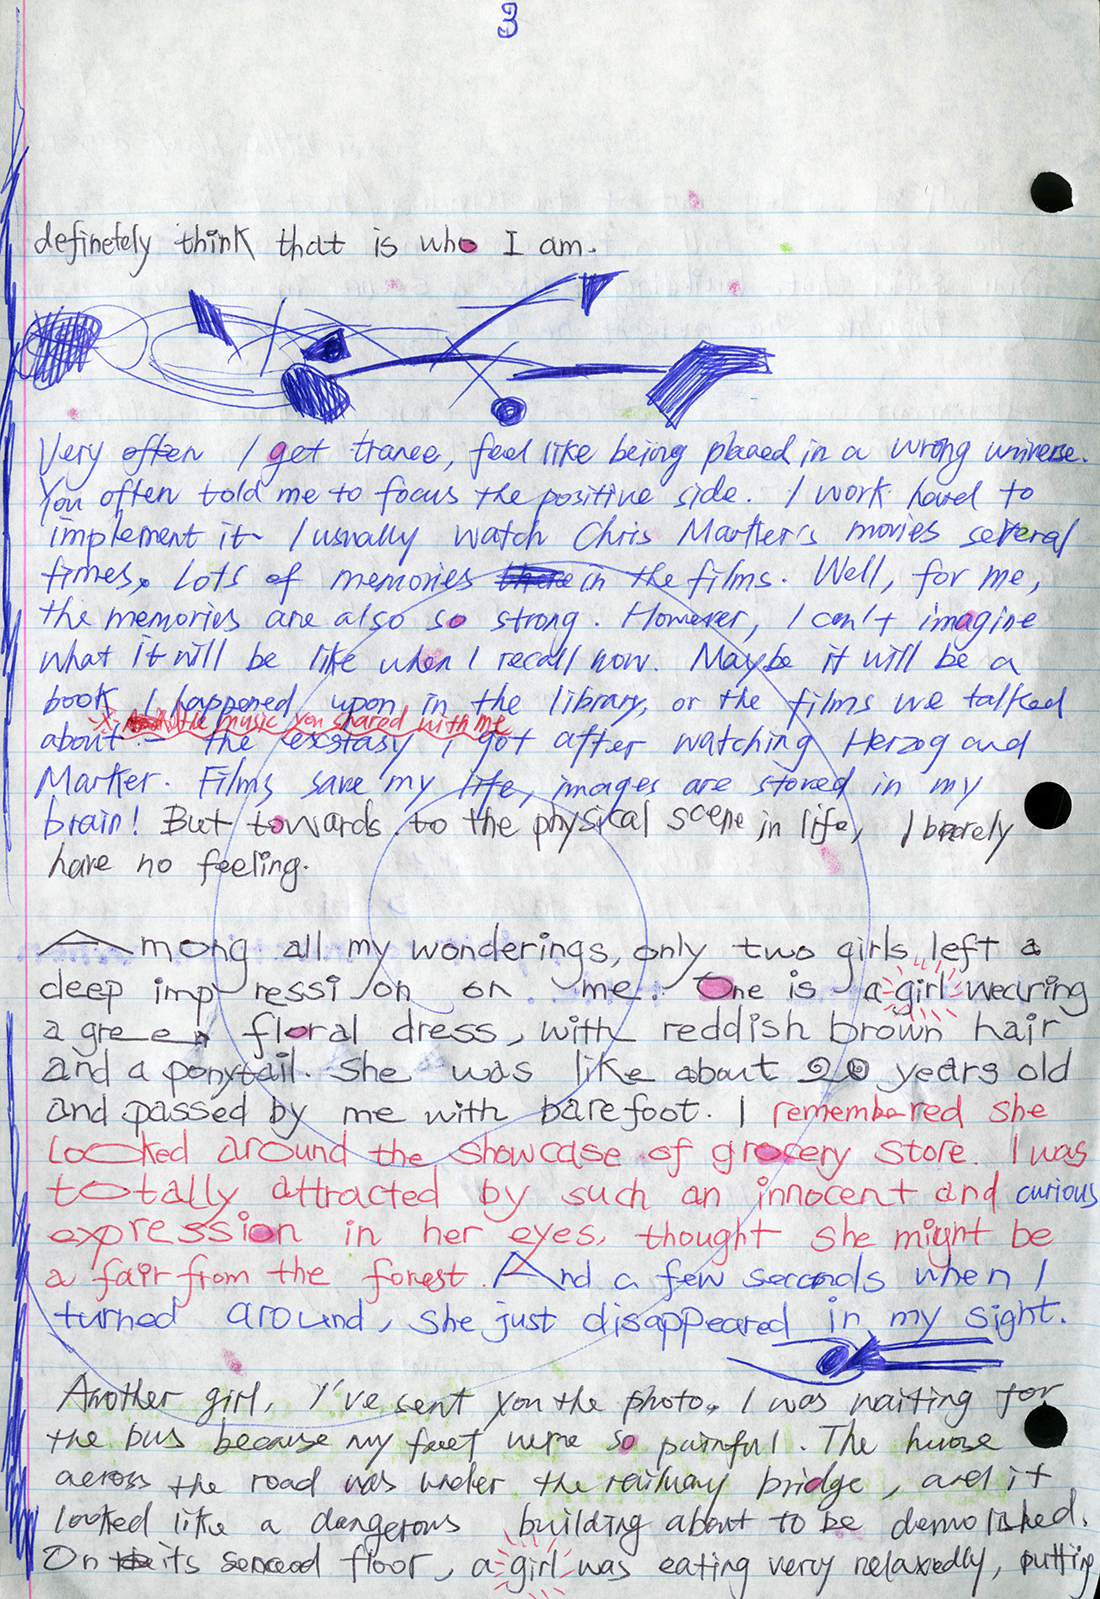 3
definetely think that is who I am.
Very often I get trance, feel like being placed in a wrong universe.
You often told me to focus the positive side. I work hard to
implement it. I usually watch Chris Marker's movies several
times. Lots of memories in the films. Well, for me,
the memories are also so strong. However, I can't imagine
what it will be like when I recall now. Maybe it will be a
book I happened upon in the library, or the films we talked
the music you shared with me
about – the exstasy I got after watching Herzog and
Marker. Films save my life, images are stored in my
brain! But towards to the physical scene in life, I barely
have no feeling.
Among all my wonderings, only two girls left a
deep impression on me. One is a girl wearing
a green floral dress, with reddish brown hair
and a ponytail. She was like about 20 years old
and passed by me with barefoot. I remembered she
looked around the showcase of grocery store. I was
totally attracted by such an innocent and curious
expression in her eyes, thought she might be
a fair from the forest. And a few seconds when I
turned around, she just disappeared in my sight.
Another girl, I've sent you the photo. I was waiting for
the bus because my feet were so painful. The house
across the road was under the railway bridge, and it
looked like a dangerous building about to be demolished.
On its second floor, a girl was eating very relaxedly, putting